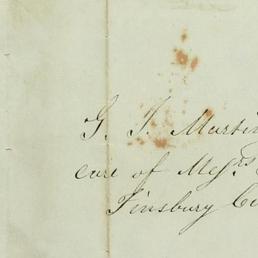 G. T. Martin
care of Messrs
Finsbury